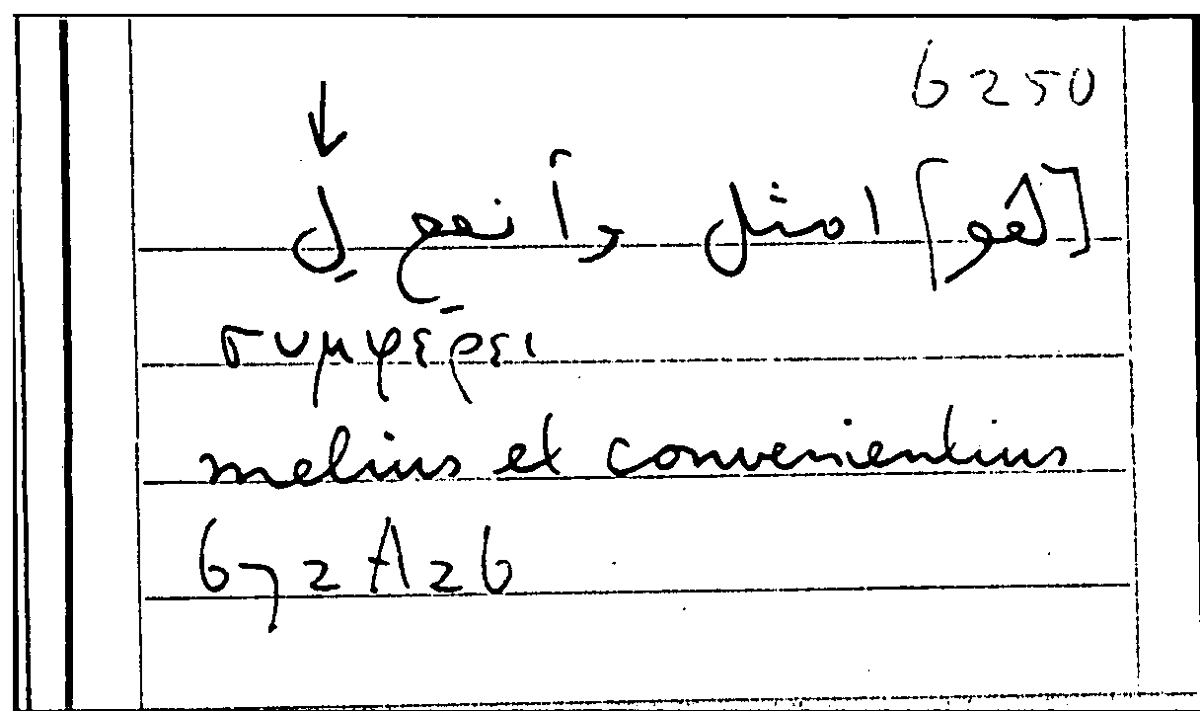 6250
↓
[لهو] امثل وأنفع لِ
συμφέρει
melius et convenientius
672 A26